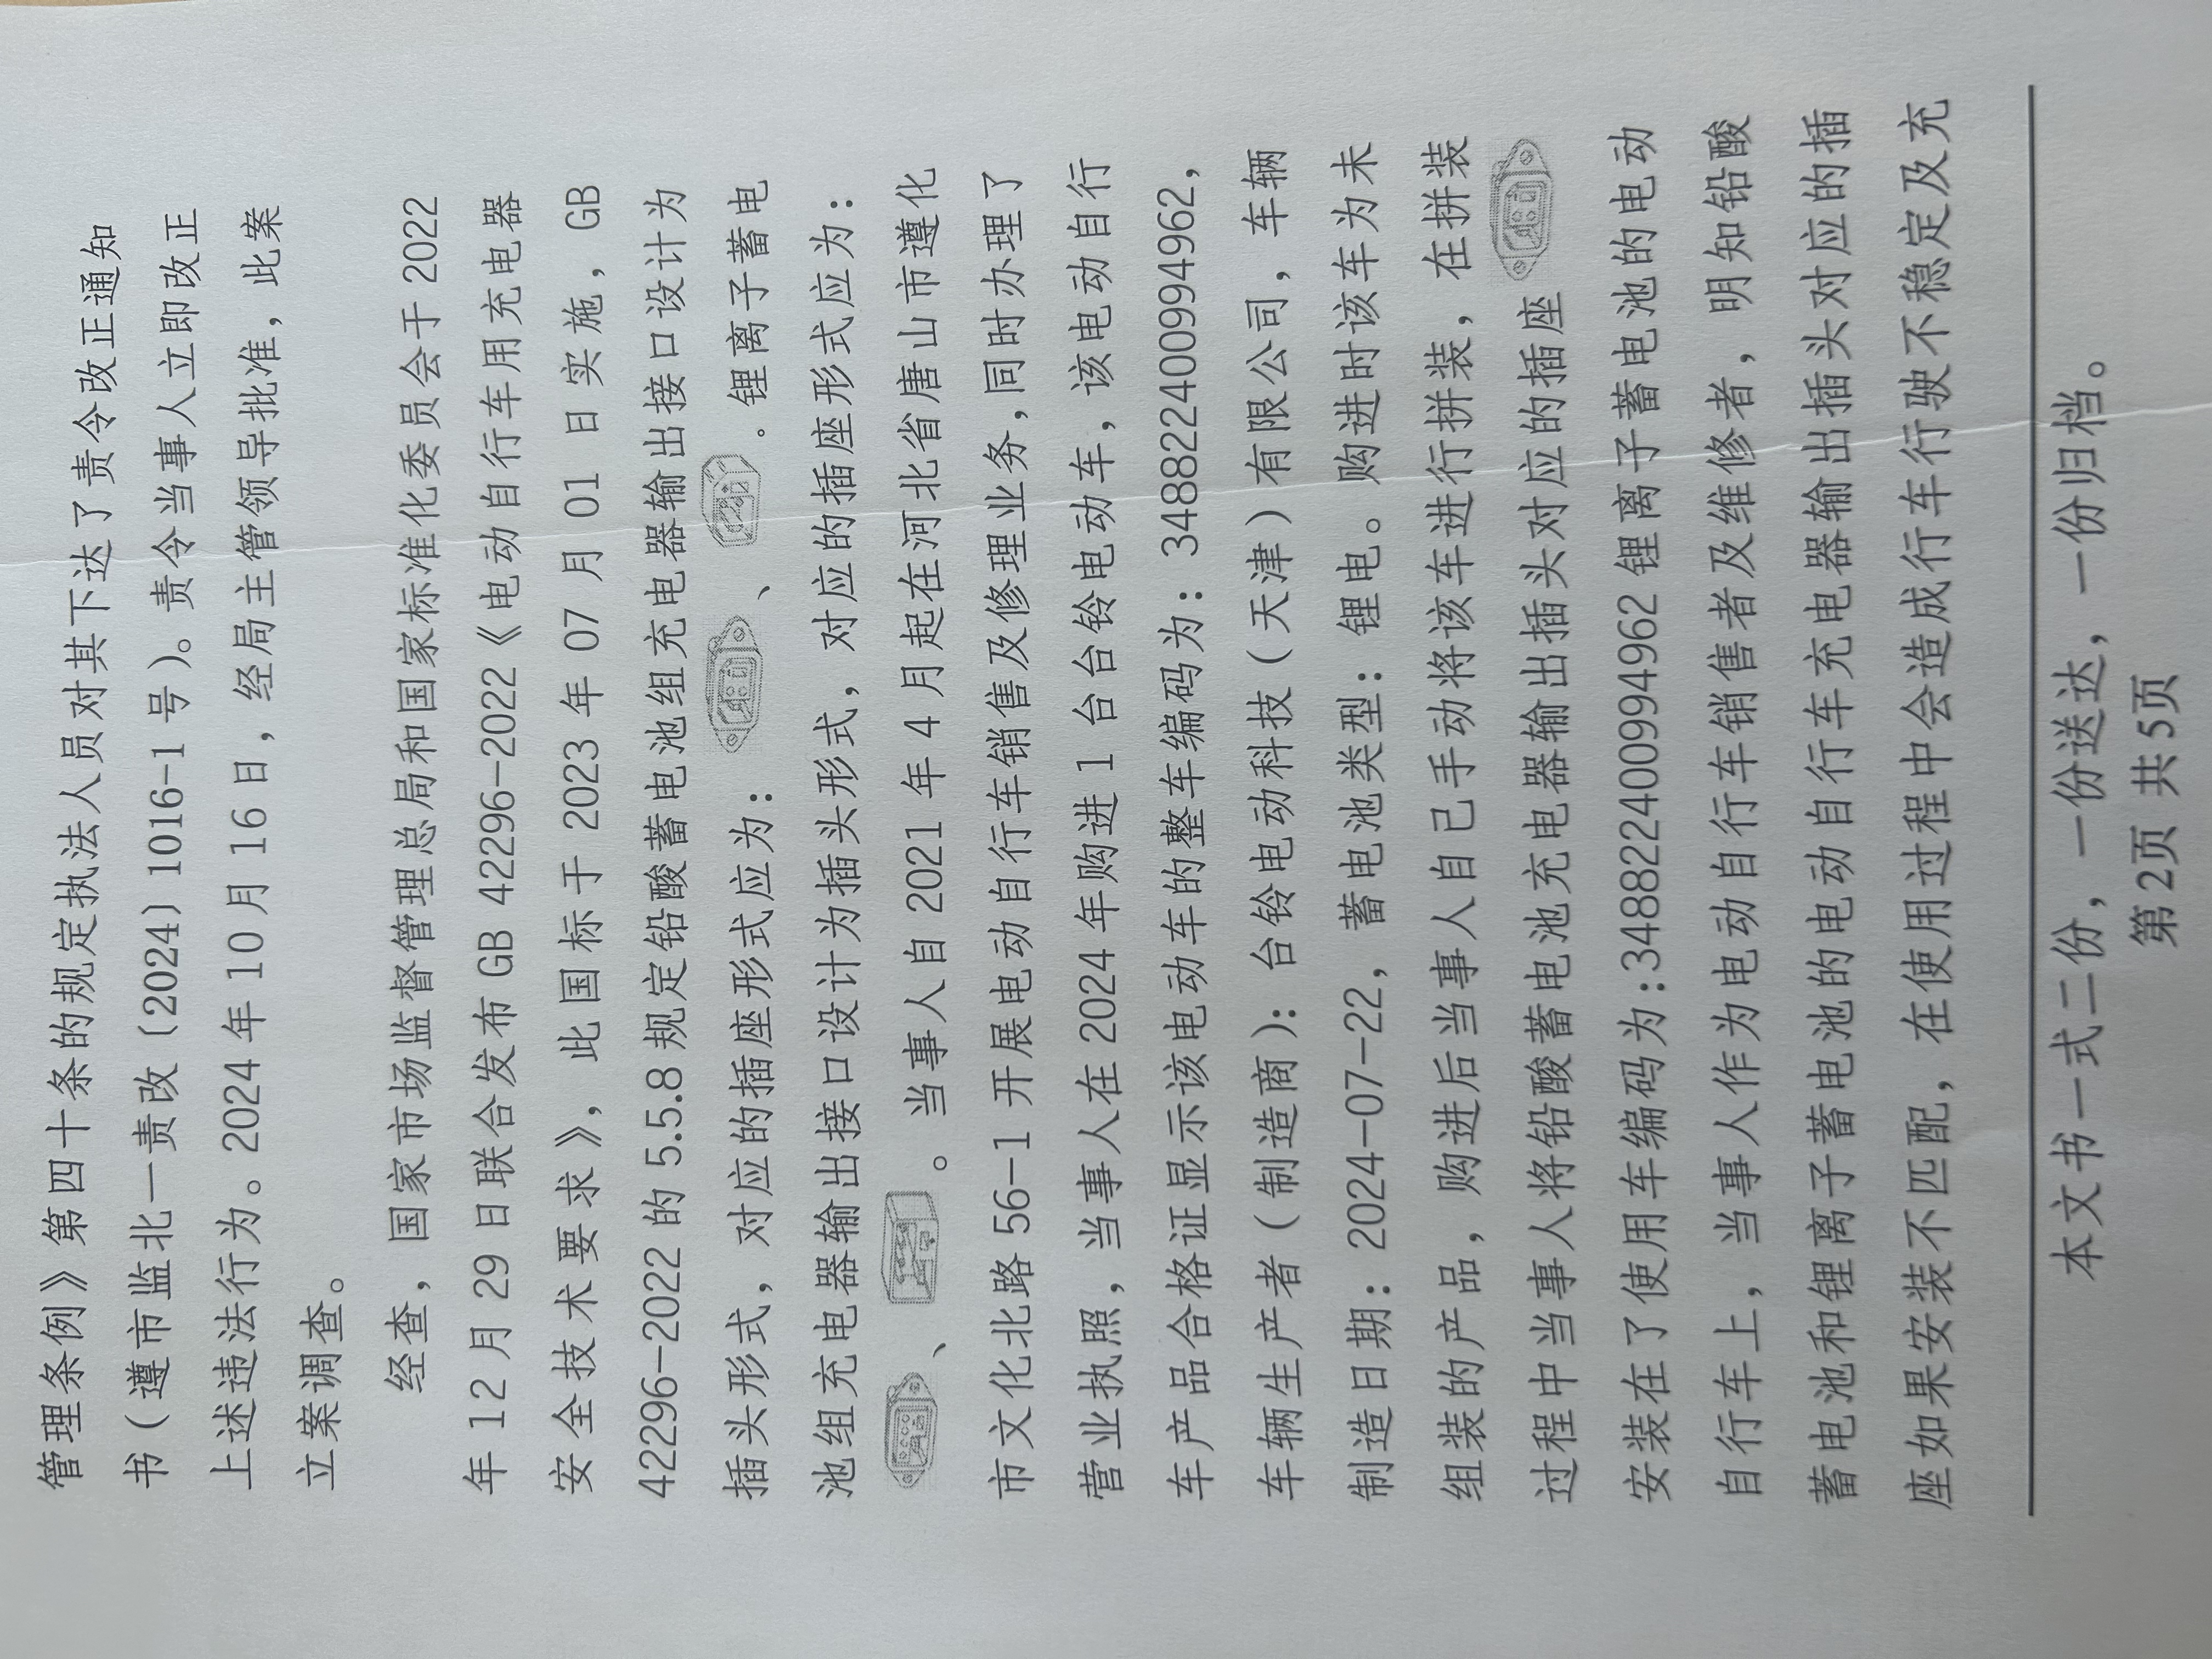 管理条例》第四十条的规定执法人员对其下达了责令改正通知
书（遵市监北一责改〔2024〕1016-1号）。责令当事人立即改正
上述违法行为。2024年10月16日，经局主管领导批准，此案
立案调查。
经查，国家市场监督管理总局和国家标准化委员会于2022
年12月29日联合发布GB 42296-2022《电动自行车用充电器
安全技术要求》，此国标于2023年07月01日实施，GB
42296-2022的5.5.8规定铅酸蓄电池组充电器输出接口设计为
插头形式，对应的插座形式应为：、。锂离子蓄电
池组充电器输出接口设计为插头形式，对应的插座形式应为：
、。当事人自2021年4月起在河北省唐山市遵化
市文化北路56-1开展电动自行车销售及修理业务,同时办理了
营业执照，当事人在2024年购进1台台铃电动车，该电动自行
车产品合格证显示该电动车的整车编码为：348822400994962，
车辆生产者（制造商）：台铃电动科技（天津）有限公司，车辆
制造日期：2024-07-22，蓄电池类型：锂电。购进时该车为未
组装的产品，购进后当事人自己手动将该车进行拼装，在拼装
过程中当事人将铅酸蓄电池充电器输出插头对应的插座
安装在了使用车编码为:348822400994962锂离子蓄电池的电动
自行车上，当事人作为电动自行车销售者及维修者，明知铅酸
蓄电池和锂离子蓄电池的电动自行车充电器输出插头对应的插
座如果安装不匹配，在使用过程中会造成行车行驶不稳定及充
本文书一式二份，一份送达，一份归档。
第2页 共5页